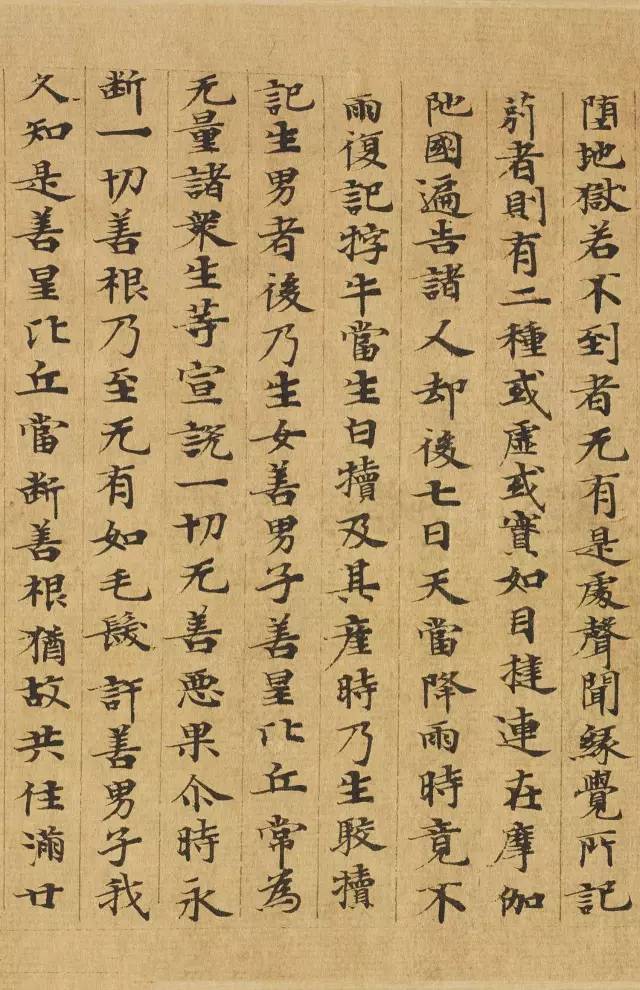 堕地獄若不到者无有是處聲聞緣覺所記
莂者則有二種或虛或實如目揵連在摩伽
阤國遍告諸人却後七日天當降雨時竟不
雨復記牸牛當生白犢及其產時乃生駮犢
記生男者後乃生女善男子善星比丘常為
无量諸衆生等宣說一切无善惡果尒時永
斷一切善根乃至无有如毛髮許善男子我
久知是善星比丘當斷善根猶故共住滿廿